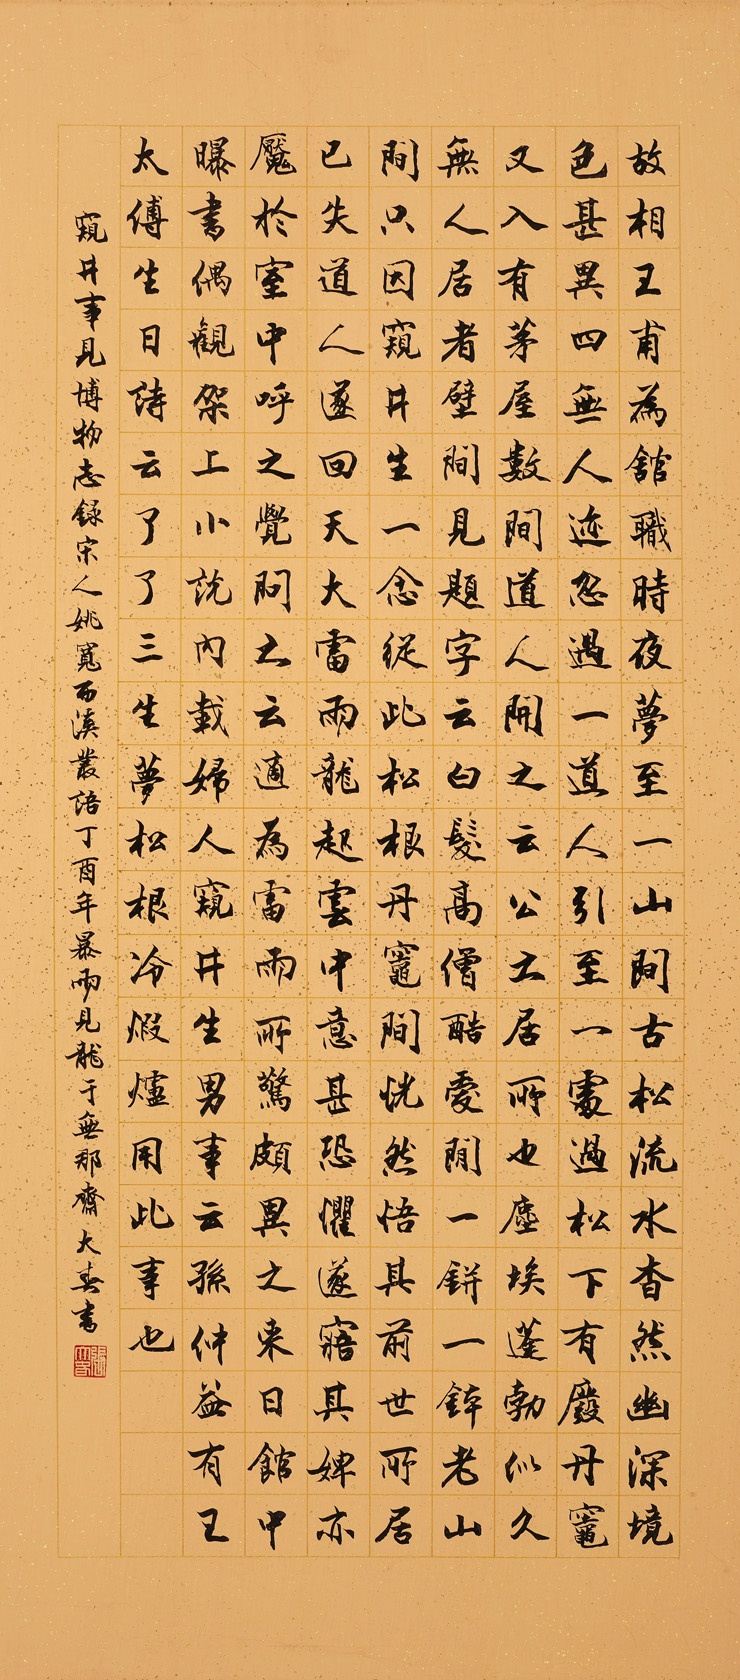 故相王甫為館職時夜夢至一山間古松流水杳然幽深境
色甚異四無人迹忽過一道人引至一處過松下有廢丹竈
又入有茅屋數間道人開之云公之居所也塵埃蓬勃似久
無人居者壁間見題字云白髮高僧酷愛閒一鉼一鉢老山
間只因窺井生一念從此松根丹竈間恍然悟其前世所居
已失道人遂回天大雷雨龍起雲中意甚恐懼遂寤其婢亦
魘於室中呼之覺問之云適為雷雨所驚頗異之來日館中
曝書偶觀架上小說內載婦人窺井生男事云孫仲益有王
太傅生日詩云了了三生夢松根冷煅爐用此事也
窺井事見博物志錄宋人姚寬西溪叢語丁酉年暴雨見龍于無那齋大春書